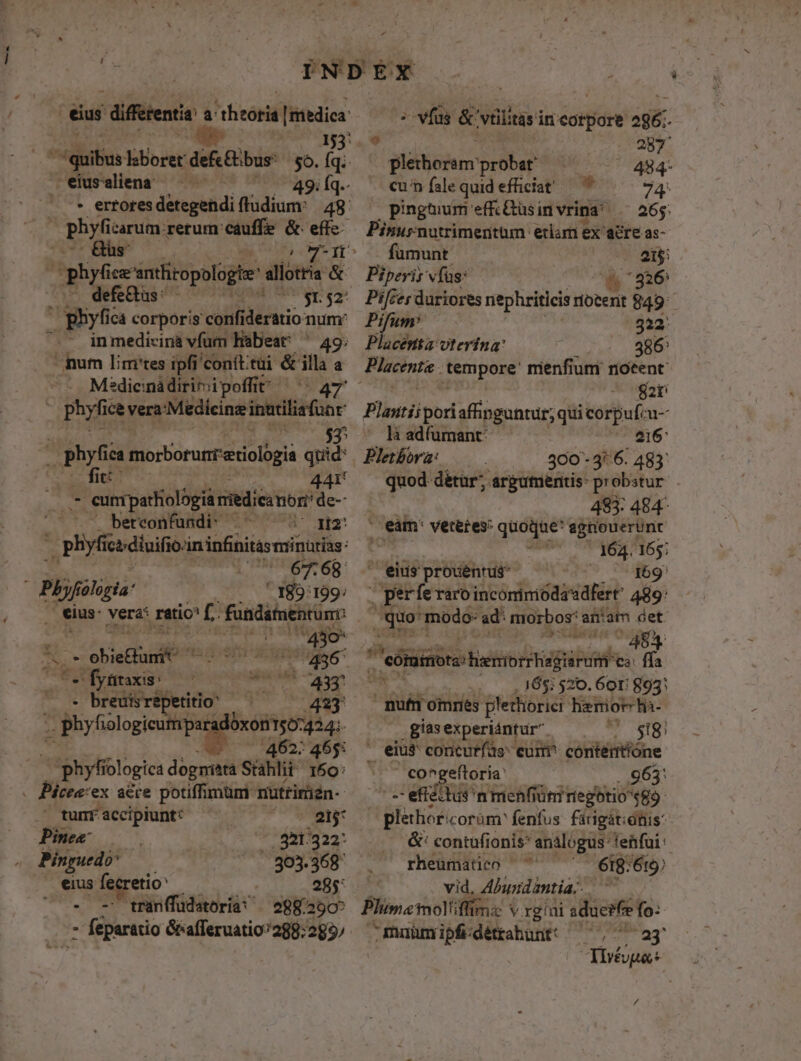 INDEX
eius differentia a theoria medica
153
quibus laboret defectibus 50. ſq.
eius aliena 49. ſq.
- errores detegendi ſtudium 48
phyſicarum rerum cauſſæ & effe-
ctus 7-11
phyſicæ anthropologiæ allotria &
defectus 51. 52
phyſica corporis conſideratio num
in medicina vſum habeat 49
num limites ipſi conſtitui & illa a
Medicina dirimi poſſit 47
phyſicæ vera Medicinæ inutilia ſunt
53
phyſica morborum ætiologia quid
ſit 441
- cum pathologia medica non de-
bet confundi 112
phyſica diuiſio in infinitas minutias
67. 68
Phyſiologia 189. 199
eius vera ratio ſ. fundamentum
430
- obiectum 436
- ſyntaxis 433
- breuis repetitio 423
phyſiologicum paradoxon 150. 424.
462. 465
phyſiologica dogmata Stahlii 160
Piceæ ex aëre potiſſimum nutrimen-
tum accipiunt 215
Pineæ 321. 322
Pinguedo 303. 368
eius ſecretio 285
- - tranſſudatoria 288. 290
- ſeparatio & aſſeruatio 288. 289
- vſus & vtilitas in corpore 286.
287
plethoram probat 484
cum ſale quid efficiat 74
pinguium effectus in vrina 265
Pinus nutrimentum etiam ex aëre as-
ſumunt 215
Piperis vſus 326
Piſces duriores nephriticis nocent 849
Piſum 322
Placenta vterina 386
Placentæ tempore menſium nocent
821
Plantis pori affinguntur, qui corpuſcu-
la adſumant 216
Plethora 300-306. 483
quod detur, argumentis probatur
483. 484
eam veteres quoque agnouerunt
164. 165
eius prouentus 169
per ſe raro incommoda adfert 489
quo modo ad morbos anſam det
484
commota hæmorrhagiarum cauſſa
165. 520. 601. 893
num omnes plethorici hæmorrha-
gias experiantur 518
eius concurſus cum contentione
congeſtoria 963
- - effectus in menſium negotio 589
plethoricorum ſenſus fatigationis
& contuſionis analogus ſenſui
rheumatico 618. 619
vid. Abundantia.
Plumæ molliſſimæ virgini aduerſæ ſo-
mnum ipſi detrahunt 23
Πνεύμα